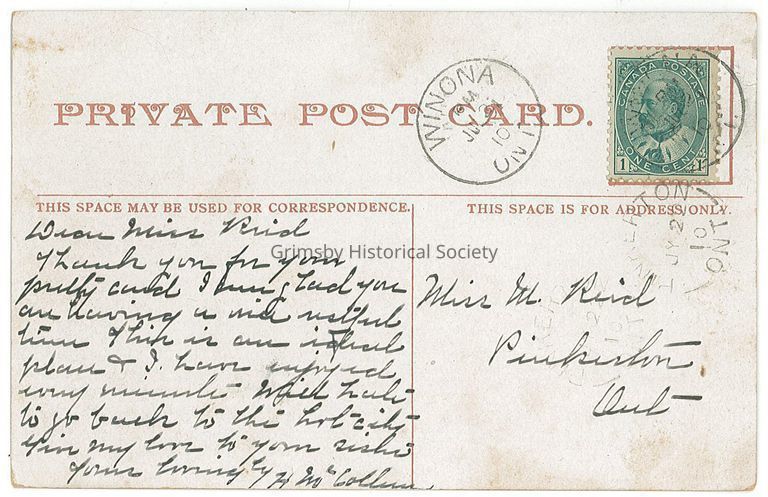 PRIVATE POST CARD.
WINONA
PM
JU 21
10
ONT
CANADA POSTAGE
1 ONE CENT 1
THIS SPACE MAY BE USED FOR CORRESPONDENCE.
THIS SPACE IS FOR ADDRESS ONLY.
Dear Miss Reid
Thank you for your
pretty card I am glad you
are having a nice restful
time This is an ideal
place & I have enjoyed
every minute Will hate
to go back to the hot city
Give my love to your sister
Yours lovingly H McCollum
Miss M. Reid
Pinkerton
Ont
ERTON
JY 2
10
ONT
Grimsby Historical Society